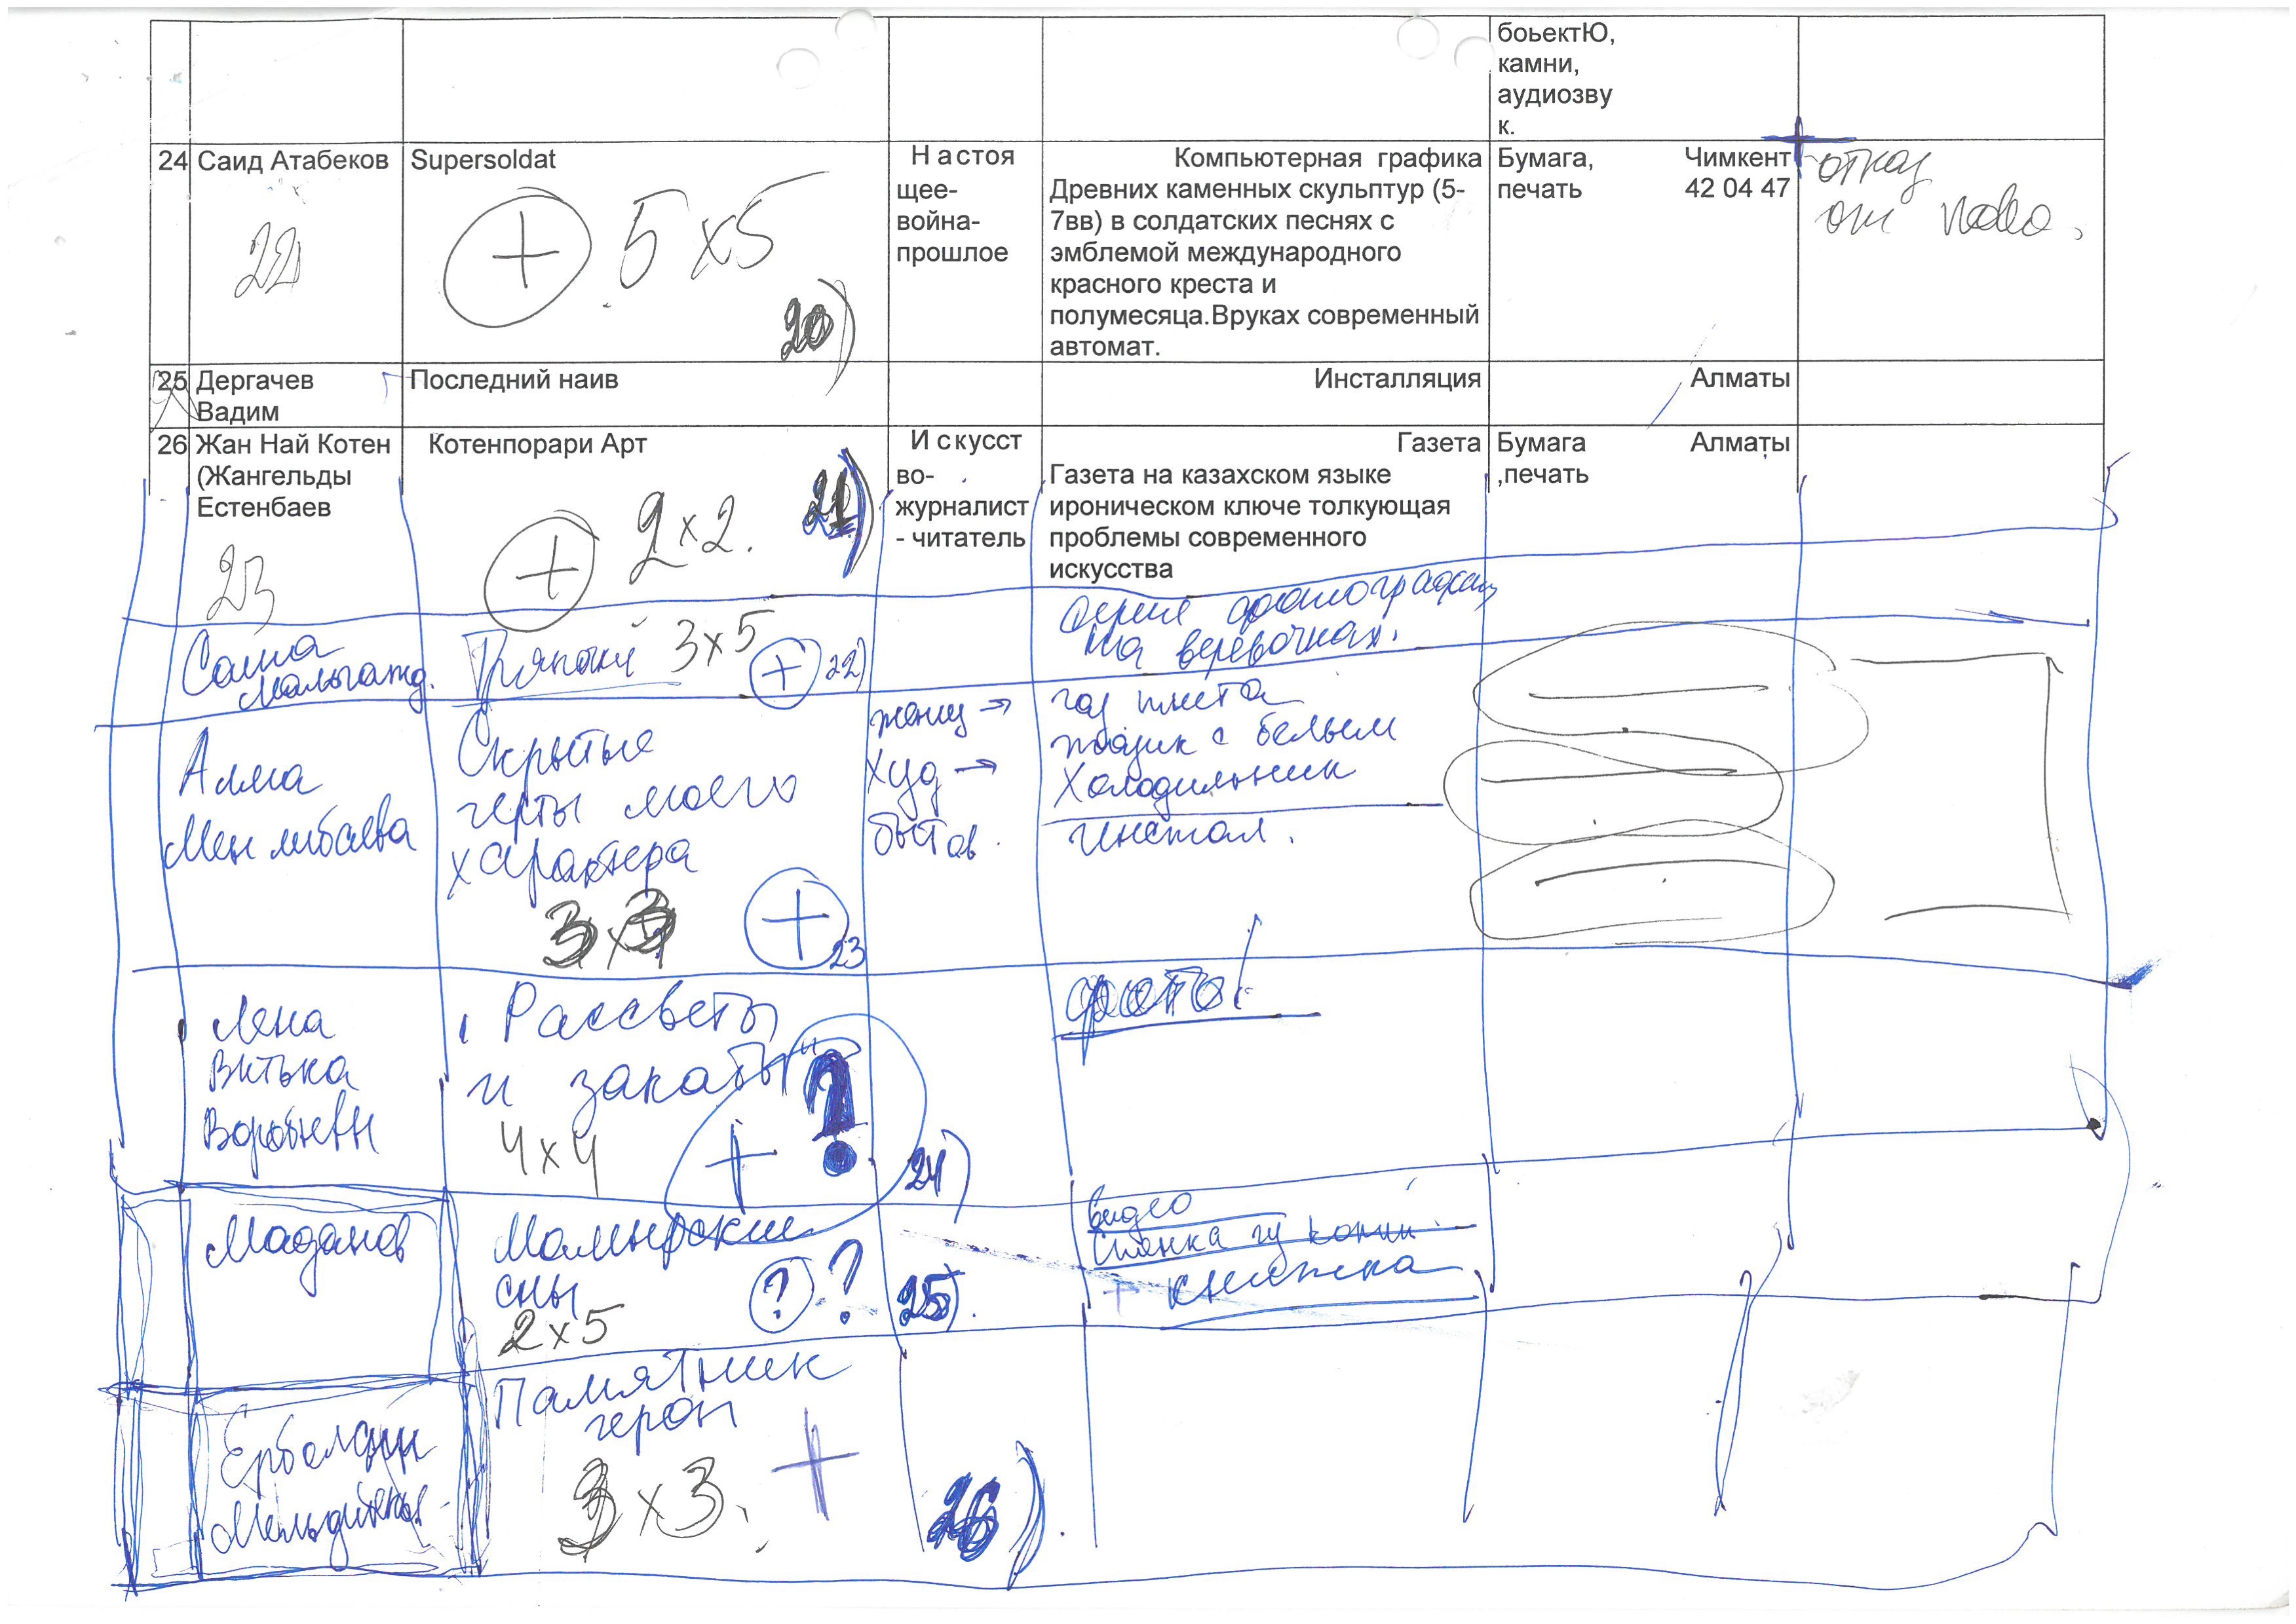 боьектЮ,
камни,
аудиозву
к.
24 Саид Атабеков
22
Supersoldat
+ 5 x 5
20)
Настоя
щее-
война-
прошлое
Компьютерная графика
Древних каменных скульптур (5-
7вв) в солдатских песнях с
эмблемой международного
красного креста и
полумесяца.Вруках современный
автомат.
Бумага,
печать
Чимкент
42 04 47
отказ
от
25 Дергачев
Вадим
Последний наив
Инсталляция
Алматы
26 Жан Най Котен
(Жангельды
Естенбаев
23
Котенпорари Арт
+ 2 x 2.
21)
Искусст
во-
журналист
- читатель
Газета
Газета на казахском языке
ироническом ключе толкующая
проблемы современного
искусства
Бумага
,печать
Алматы
Саша
Тряпочки 3 x 5
+ 22)
Серия фотографий
на верёвочках.
Алма
Менлибаева
Скрытые
черты моего
характера
3 x 3
+ 23
женщ →
худ →
бытов.
газ плита
с белым
Холодильник
Инстал.
Лена
Витька
Воробьевы
Рассветы
и закаты"
4 x 4
+ ?
24)
фото
Маданов
сны
2 x 5
? ?
25).
видео
+ книжка
Ербол
Памятник
3 x 3.
+
26).